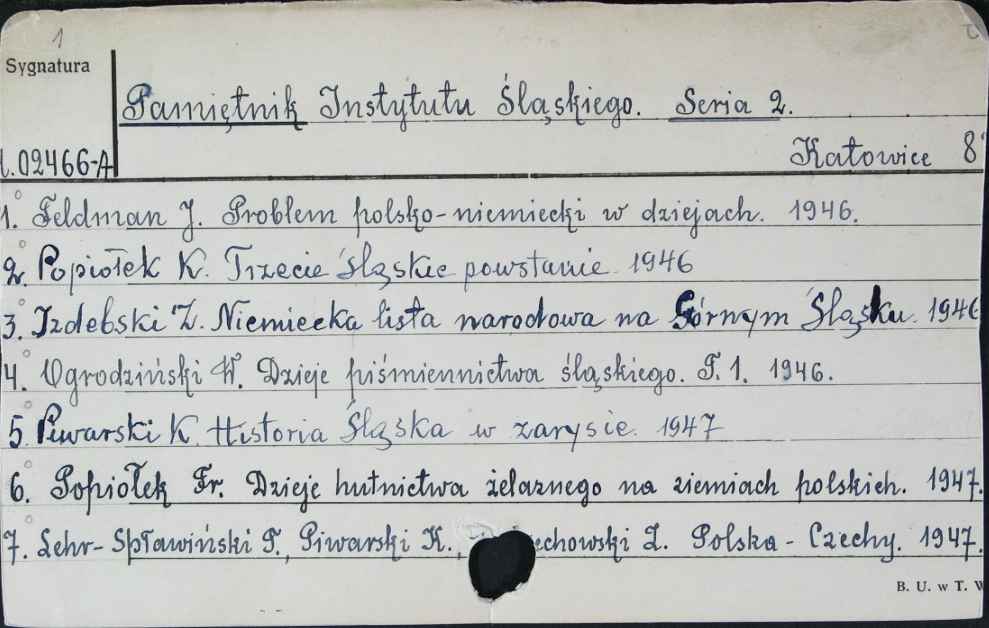 1
Sygnatura
Pamiętnik Instytutu Śląskiego. Seria 2.
02466-A
Katowice 8°
1. Feldman J. Problem polsko-niemiecki w dziejach. 1946.
2. Popiołek K. Trzecie śląskie powstanie. 1946
3. Izdebski Z. Niemiecka lista narodowa na Górnym Śląsku. 1946
4. Ogrodziński W. Dzieje piśmiennictwa śląskiego. T. 1. 1946.
5. Piwarski K. Historia Śląska w zarysie. 1947
6. Popiołek Fr. Dzieje hutnictwa żelaznego na ziemiach polskich. 1947.
7. Lehr-Spławiński T., Piwarski K., echowski Z. Polska - Czechy. 1947.
B. U. w T.